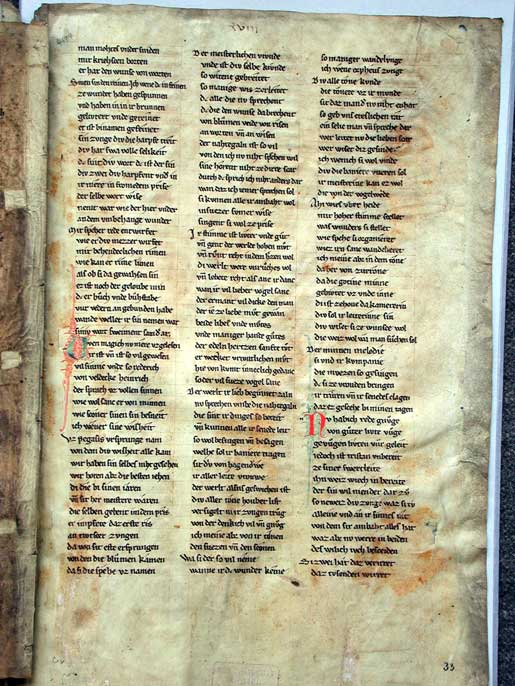 man mohtes vnder sniden
mir kriehschen borten
er hat den wunsch von worten
sinen sin den reinen Ich wene da in feinen
ze wunder haben gespunnen
vnd haben in in ir brunnen
geluteret vnde gereinet
er ist binamen gefeinet
sin zvnge div die harpfe treit
div hat zwa volle selikeit
dc sint div wort dc ist der sin
div zwei div harpfent vnd in
ir mere in fromedem prise
der selbe wort wise
nemt war wie der hier vnder
an dem vmbehange wunder
mit spaher rede entwirfet
wie er div mezzer wirfet
mit behendeclichen rimen
wie kan er rime limen
als ob si da gewahsen sin
ez ist noch der geloube min
dc er buch vnde buhstabe
vur vedern an gebunden habe
wande weller ir sin nemen war
sinv wort sweiment samt ar
wen mag ich nv mere vz gelesen
ez ist vn ist so vil gewesen
vil sinne vnde so rederich
von veldecke heinrich
der sprach vz vollen sinnen
wie wol sanc er von minnen
wie schoner sinen sin besneit
ich wener sine wisheit
vz pegases vrsprunge nam
von dem div wisheit alle kam
wir haben sin selbes niht gesehen
wir horen als die besten iehen
di die bi sinen iaren
vn sit her meister waren
die selben gebent in dem pris
er impfete daz erste ris
an tvtscer zvngen
da von sit este ersprungen
von den die blumen kamen
da si die spehe vz namen
XVIII
Der meisterlichen vvnde
vnde ist div selbe kvnde
so witene gebreitet
so maniger wis zerleitet
dc alle die nv sprechent
dc die den wunsch da brechent
von blumen vnde von risen
an worten vn an wisen
der nahtegaln ist so vil
von den ich nv niht spchen wil
sine horent niht ze dirre scar
durch dc sprich ich niht anders dar
wan daz ich iemer sprechen sol
si kvnnen alle ir ambaht wol
in suzer somer wise
singent si wol ze prise
ir stimme ist luter vnde gut
vn gent der werlte hohen mvt
vn tvnt rehte in dem hzen wol
div werlt were vnruches vol
vn lebete reht als ane ir danc
wan ir vil lieber vogel sanc
der ermant vil dicke den man
der ie ze liebe mvt gewan
beide liebes vnde mvotes
vnde maniger hande gutes
der edeln hertzen sanfte tvt
er wecket vrvntlichen mvt
hie von kvmt inneclich gedanc
so der vil sueze vogel sanc
der werlt ir lieb beginnet zaln
nv sprechen vmbe die nahtegaln
die sint ir dinges so bereit
vn kunnen alle ir sende leit
so wol besungen vn besagen
welhe sol ir baniere tragen
sit dv von hagenowe
ir aller leite vrowe
der werlt alsus geswichen ist
div aller doene houbet list
versigelt in ir zvngen trvg
von der denkich vil vn gnvg
ich meine abe von ir doenen
den suezen vn den schonen
Wa si der so vil neme
wanne ir dc wunder keme
so maniger wandelvnge
ich wene orpheus zvnge
Div alle doene kvnde
die doenet vz ir mvnde
sit daz man dv niht enhat
so geb uns etesliches rat
ein selic man vn spreche dar
wer leitet nv die lieben scar
wer wiset diz gesinde
ich wenich si wol vinde
div die baniere vueren sol
ir meisterinne kan ez wol
div von der vogelweide
Ahi wiez vber heide
mit hoher stimme schellet
was wunders si stellet
wie spehe si organieret
wiez ir sanc wandelieret
ich meine abe in dem done
da her von zitherone
da die gotinne minne
gebiutet vf vnde inne
div ist ze houe da kamererin
div sol ir leiterinne sin
div wiset si ze wunsce wol
die weiz wol wa man suchen sol
der minnen melodie
si vnd ir kvmpanie
die muezen so gesingen
dc si ze vrouden bringen
ir truren vn ir senedes clagen
daz ez gescehe bi minen tagen
Nv habich rede gnvge
von guter lvte vuge
gevuegen lvten vur geleit
iedoch ist tristan vnbereit
ze siner swertleite
ihn weiz wiech in bereite
der sin wil niender dar zv
so neweiz div zvnge waz si tv
alleine vnd an ir sinnes rat
von dem sir ambaht alles hat
waz abe nv werre in beiden
des wilich vch bescheiden
Si zwei hat daz verirret
daz tvsenden wirret
33